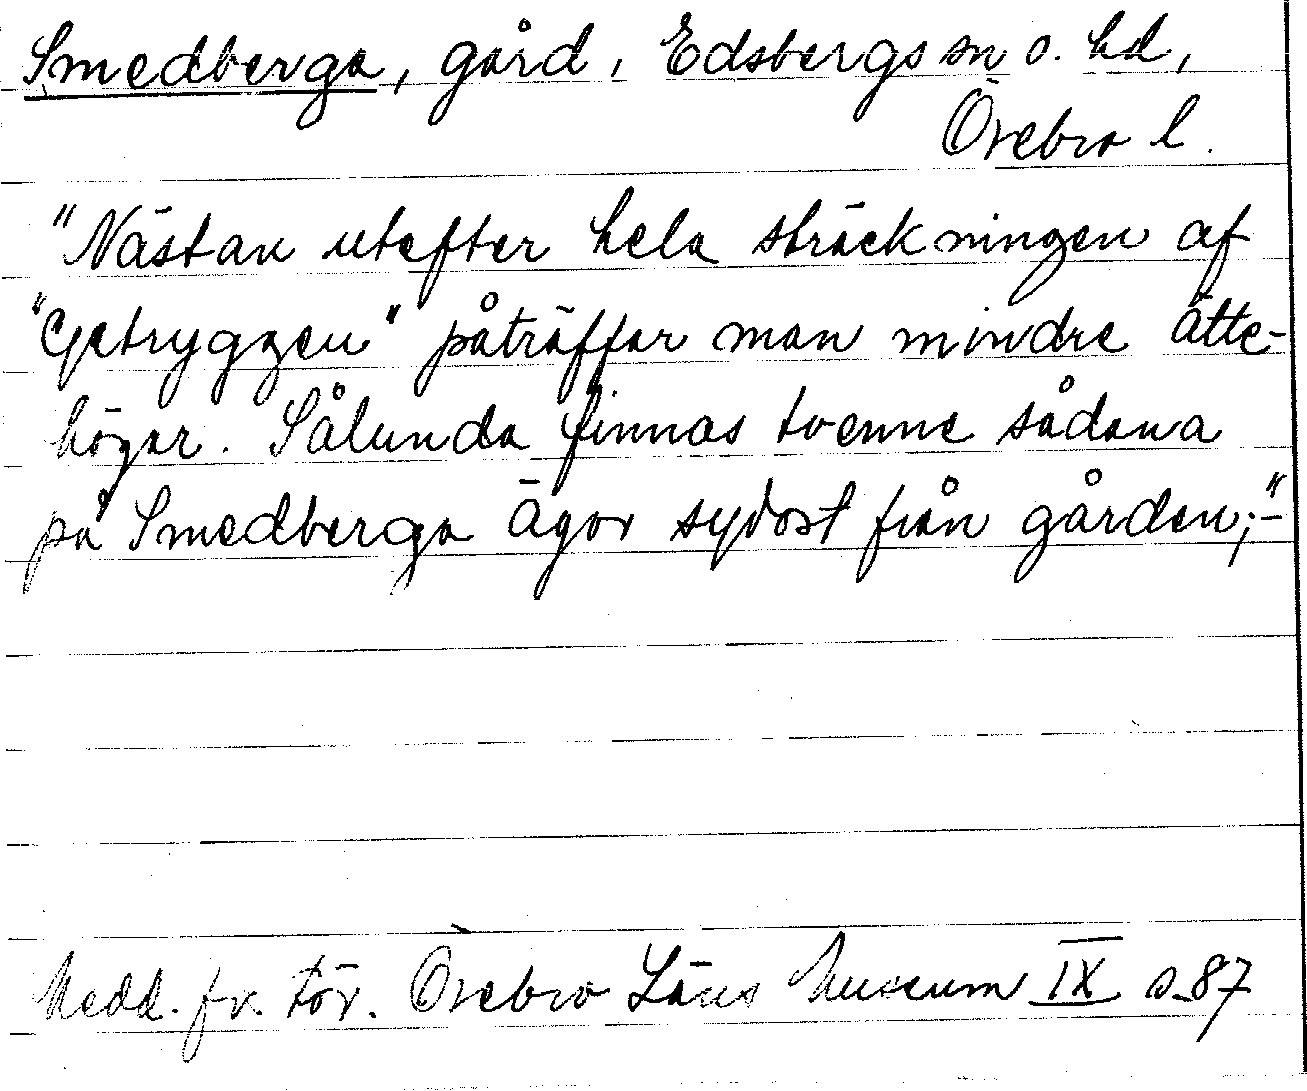 Smedberga, gård, Edsbergs sn o. hd,
Örebro l.
"Nästan utefter hela sträckningen af
"Getryggen" påträffar man mindre ätte-
högar. Sålunda finnas tvenne sådana
på Smedberga ägor sydost från gården;-"
Medd. fr. För. Örebro Läns Museum IX s. 87